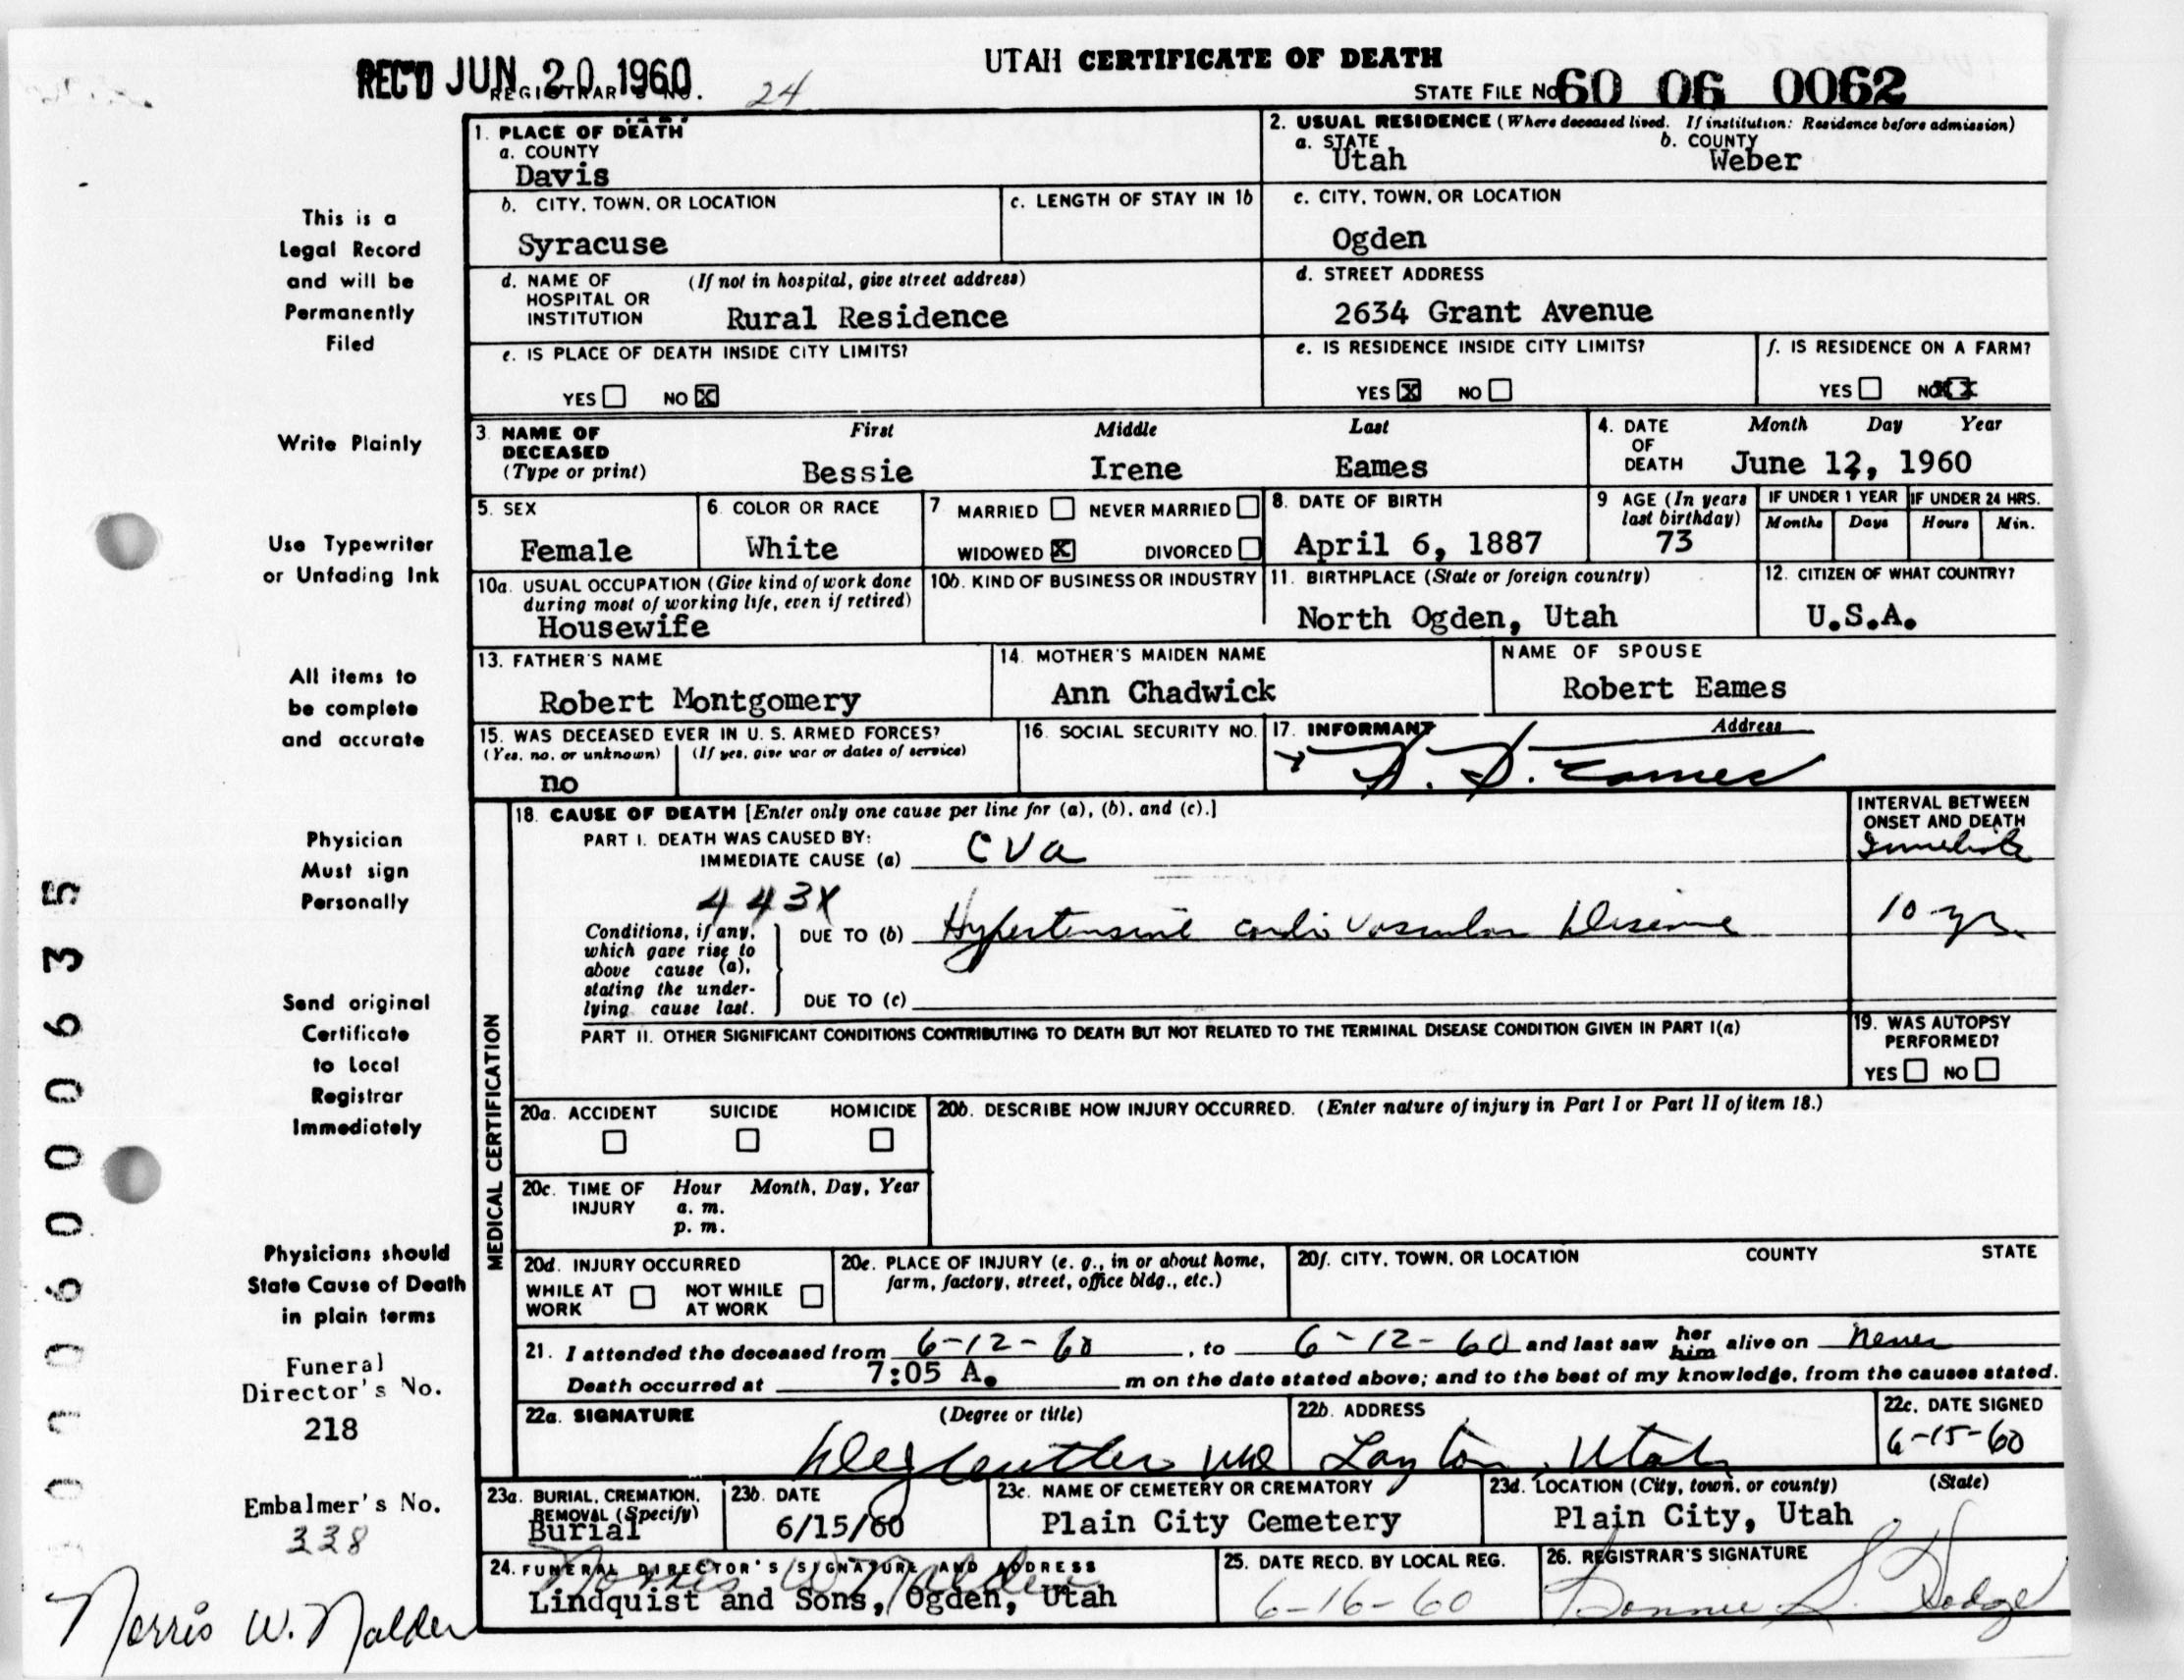 REC'D JUN 20 1960
REGISTRAR'S NO. 24
UTAH CERTIFICATE OF DEATH
STATE FILE NO. 60 06 0062
1. PLACE OF DEATH
a. COUNTY
Davis
2. USUAL RESIDENCE (Where deceased lived. If institution: Residence before admission)
a. STATE b. COUNTY
Utah Weber
b. CITY, TOWN, OR LOCATION
Syracuse
c. LENGTH OF STAY IN 1b
c. CITY, TOWN, OR LOCATION
Ogden
d. NAME OF HOSPITAL OR INSTITUTION (If not in hospital, give street address)
Rural Residence
d. STREET ADDRESS
2634 Grant Avenue
e. IS PLACE OF DEATH INSIDE CITY LIMITS?
YES NO X
e. IS RESIDENCE INSIDE CITY LIMITS?
YES X NO
f. IS RESIDENCE ON A FARM?
YES NO X
3. NAME OF DECEASED (Type or print)
First Middle Last
Bessie Irene Eames
4. DATE OF DEATH Month Day Year
June 12, 1960
5. SEX
Female
6. COLOR OR RACE
White
7 MARRIED NEVER MARRIED
WIDOWED X DIVORCED
8. DATE OF BIRTH
April 6, 1887
9 AGE (In years last birthday)
73
IF UNDER 1 YEAR
Months Days
IF UNDER 24 HRS.
Hours Min.
10a. USUAL OCCUPATION (Give kind of work done during most of working life, even if retired)
Housewife
10b. KIND OF BUSINESS OR INDUSTRY
11. BIRTHPLACE (State or foreign country)
North Ogden, Utah
12. CITIZEN OF WHAT COUNTRY?
U.S.A.
13. FATHER'S NAME
Robert Montgomery
14. MOTHER'S MAIDEN NAME
Ann Chadwick
NAME OF SPOUSE
Robert Eames
15. WAS DECEASED EVER IN U. S. ARMED FORCES?
(Yes, no, or unknown) (If yes, give war or dates of service)
no
16. SOCIAL SECURITY NO.
17. INFORMANT Address
Eames
MEDICAL CERTIFICATION
18. CAUSE OF DEATH [Enter only one cause per line for (a), (b), and (c).]
PART I. DEATH WAS CAUSED BY:
IMMEDIATE CAUSE (a) CVA
INTERVAL BETWEEN ONSET AND DEATH
Immediate
443X
Conditions, if any, which gave rise to above cause (a), stating the underlying cause last.
DUE TO (b) Hypertensive cardio vascular Disease 10 yr.
DUE TO (c)
PART II. OTHER SIGNIFICANT CONDITIONS CONTRIBUTING TO DEATH BUT NOT RELATED TO THE TERMINAL DISEASE CONDITION GIVEN IN PART I(a)
19. WAS AUTOPSY PERFORMED?
YES NO
20a. ACCIDENT SUICIDE HOMICIDE
20b. DESCRIBE HOW INJURY OCCURRED. (Enter nature of injury in Part I or Part II of item 18.)
20c. TIME OF INJURY Hour Month, Day, Year
a. m.
p. m.
20d. INJURY OCCURRED
WHILE AT WORK NOT WHILE AT WORK
20e. PLACE OF INJURY (e. g., in or about home, farm, factory, street, office bldg., etc.)
20f. CITY, TOWN, OR LOCATION COUNTY STATE
21. I attended the deceased from 6-12-60, to 6-12-60 and last saw her him alive on never
Death occurred at 7:05 A. m on the date stated above; and to the best of my knowledge, from the causes stated.
22a. SIGNATURE (Degree or title)
MD
22b. ADDRESS
Layton, Utah
22c. DATE SIGNED
6-15-60
23a. BURIAL, CREMATION, REMOVAL (Specify)
Burial
23b. DATE
6/15/60
23c. NAME OF CEMETERY OR CREMATORY
Plain City Cemetery
23d. LOCATION (City, town, or county) (State)
Plain City, Utah
24. FUNERAL DIRECTOR'S SIGNATURE AND ADDRESS
Norris W. Nalder
Lindquist and Sons, Ogden, Utah
25. DATE RECD. BY LOCAL REG.
6-16-60
26. REGISTRAR'S SIGNATURE
Bonnie S. Hodge
This is a
Legal Record
and will be
Permanently
Filed
Write Plainly
Use Typewriter
or Unfading Ink
All items to
be complete
and accurate
Physician
Must sign
Personally
Send original
Certificate
to Local
Registrar
Immediately
Physicians should
State Cause of Death
in plain terms
Funeral
Director's No.
218
Embalmer's No.
338
Norris W. Nalder